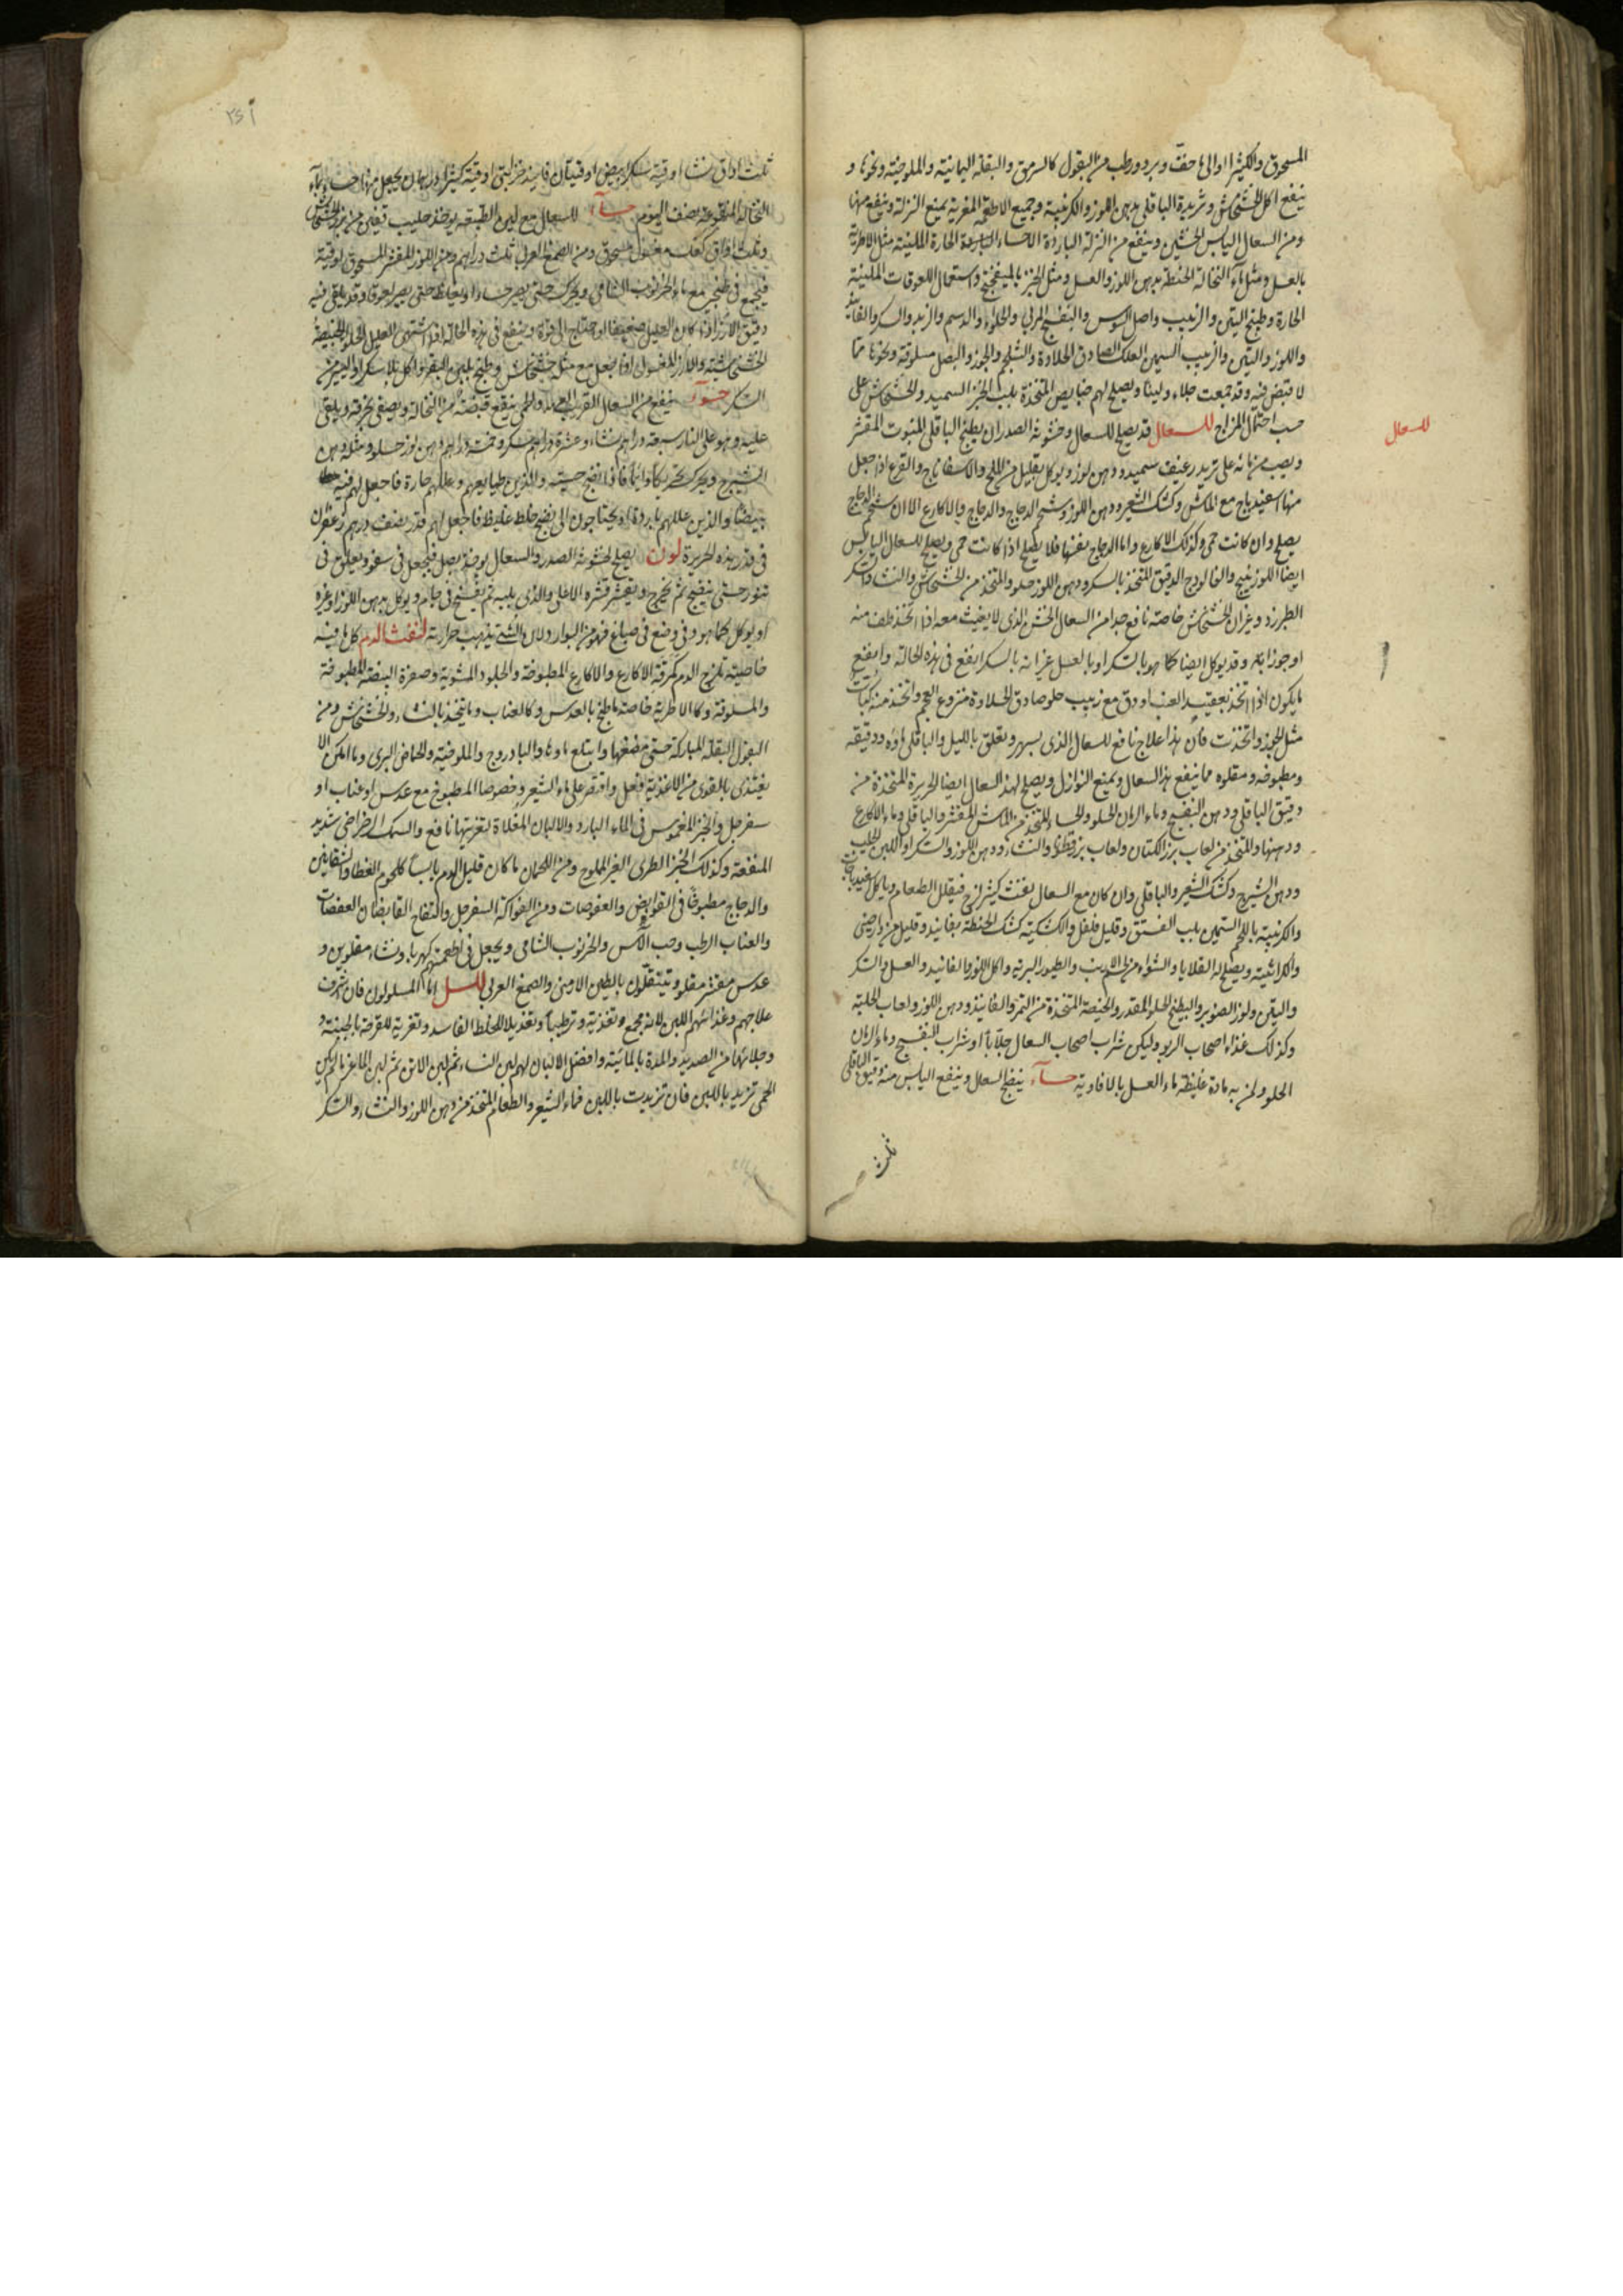 المسحوق والكثيرا او الى ما خف وبرد ورطب من البقول كالسرمق والبقلة اليمانية والملوخية ونحوها و
ينفع اكل الخشخاش وثريدة الباقلى بدهن اللوز والكرنبية وجميع الاطعمة المغرية يمنع النزلة وينفع منها
ومن السعال اليابس الخشن وينفع من النزلة الباردة الاحساء الحارة الملينة مثل الاطرية
بالعسل ومثل ماء النخالة الحنطة بدهن اللوز والعسل ومثل الخبز بالميفختج واستعمال اللعوقات الملينة
الحارة وطبخ التين والزبيب واصل السوس والبنفسج المربى والحلواء والدسم والزبد والسكر والفانيذ
واللوز والتين والزبيب السمين العلك الصادق الحلاوة والشلجم والجوز والبصل مسلوقة ونحوها مما
لا قبض فيه وقد جمعت جلاء ولينا ويصلح لهم خبايص المتخذة بلب الخبز السميد والخشخاش على
حسب احتمال المزاج للسعال قد يصلح للسعال وخشونة الصدر ان يطبخ الباقلى المنبوت المقشر
للسعال
ويصب من مائه على ثريد رغيف سميد ودهن لوز ويوكل بقليل من الملح والاسفاناج والقرع اذا جعل
منها اسفيدباج مع الماش وكشك الشعير ودهن اللوز وشحم الدجاج والدجاج والاكارع الا ان شحم الدجاج
يصلح وان كانت حمى وكذلك الاكارع واما الدجاج بعينها فلا يصلح اذا كانت حمى ويصلح للسعال اليابس
ايضا اللوزينج والفالوذج الدقيق المتخذ بالسكر ودهن اللوز حلو والمتخذ من الخشخاش والنشا والسكر
الطبرزد وغير ان الخشخاش خاصته نافع جدا من السعال الخشن الذى لا يغيث معه اذا اتخذ طف منه
او جوزابة وقد يوكل ايضا كما هو بالسكر او بالعسل غير انه بالسكر انفع فى هذه الحالة وانفع
ما يكون اذا اتخذ بعقيد العنب او دق مع زبيب حلو صادق الحلاوة منزوع العجم واتخذ منه كباب
مثل الجوز واتخذت فان هذا علاج نافع للسعال الذى يسهر ويقلق بالليل والباقلى ماؤه ودقيقه
ومطبوخه ومقلوه مما ينفع هذا السعال ويمنع النوازل ويصلح لهذا السعال ايضا الحريرة المتخذة من
دقيق الباقلى ودهن البنفسج وماء الرمان الحلو والحساء المتخذ من الماش المقشر والباقلى وماء الاكارع
ودهنها والمتخذ من لعاب بزر الكتان ولعاب بزرقطونا والنشاء ودهن اللوز والسكر او اللبن الحليب
ودهن الشيرج وكشك الشعير والباقلى وان كان مع السعال نفث كثير لزج فيقلل الطعام وياكل اسفيدباجات
والكرنبية باللحم السمين بلب الفستق وقليل فلفل والكشكية كشك الحنطة بفانيد وقليل من دارصينى
والكراثية ويصلح له القلايا والشواء من لحم الارنب والطيور البرية واكل اللوز والفانيد والعسل والسكر
والتين ولوز الصنوبر والبطيخ الحلو المقدر والخبيصة المتخذة من التمر والفانيذ ودهن اللوز ولعاب الحلبة
وكذلك غذاء اصحاب الربو وليكن شراب اصحاب السعال جلابا او شراب البنفسج وماء الرمان
الحلو ولمن به مادة غليظة ماء العسل بالافاويه حساء ينفع السعال وينفع اليابس منه دقيق الباقلى
ثلث
ثلث اواق نشا اوقية سكر ابيض اوقيتان فانيذ خزاينى اوقية كثيرا درهمان يجعل منها حساء بماء
النخالة المنقوعة نصف اليوم حساء للسعال مع لين الطبيعة يوخذ حليب
وثلث اواق كعك مغسول مسحوق ومن الصمغ العربى ثلث دراهم ومن اللوز المقشر المسحوق اوقية
فيجمع فى طنجير مع ماء الخرنوب الشامى ويحرك حتى يصير حساء او يغلظ حتى يصير لعوقا وقد يلقى فيه
دقيق الارز اذا كان العليل ضعيفا او احتاج الى قوة وينفع فى هذه الحالة اذا اشتهى العليل الحلو الخبيصة
الخشخاشية والارز المغسول اذا جعل مع مثله خشخاش وطبخ بلبن البقر واكل بلا سكر او اليسير من
السكر حساء ينفع من السعال القريب العهد والحمى ينقع قبضة من النخالة ويصفى بخرقة ويلقى
عليه وهو على النار سبعة دراهم نشاء وعشرة دراهم سكر وخمسة دراهم دهن لوز حلو ومثله دهن
الشيرج ويحرك تحريكا دائما فاذا نضج حسيته والذين طبايعهم وعللهم حارة فاجعل لهم فيه
بيضا والذين عللهم باردة او يحتاجون الى نضج خلط غليظ فاجعل لهم قدر نصف درهم زعفران
فى قدر هذه الحريرة لون يصلح لخشونة الصدر والسعال يوخذ بصل فيجعل فى سفود ويعلق فى
تنور حتى ينضج ثم يخرج ويقشر قشره الاعلى والذى يليه ثم يفسخ فى جام ويوكل بدهن اللوز او غيره
او يوكل كما هو وفى وضع فى صباغ فهو من البوارد لان الشى يذهب حرارته لنفث الدم كل ما فيه
خاصيته تلزج الدم كمرقة الاكارع والاكارع المطبوخة والجلود المشوية وصفرة البيضة المطبوخة
والمسلوقة وكالاطرية خاصة ما طبخ بالعدس وكالعناب وما يتخذ بالنشاء والخشخاش ومن
البقول البقلة المباركة حتى مضغها وابتلع ماؤها والبادروج والملوخية والحماض البرى وما امكن الا
يغتذى بالقدى من الاغذية فافعل واقتصر على ماء الشعير وخصوصا المطبوخ مع عدس او عناب او
سفرجل والخبز المغموس فى الماء البارد والالبان المغلاة لتغريتها نافع والسمك الرضراضى شديد
المنفعة وكذلك الخبز الطرى الغير المملوح ومن اللحمان ما كان قليل الدم يابسا كلحوم القطا والشفانين
والدجاج مطبوخا فى القوابض والعفوصات ومن الفواكه السفرجل والتفاح القابضان العفصان
والعناب الرطب وحب الآس والخرنوب الشامى ويجعل فى اطعمتهم كهربا ونشاء مقلوين و
عدس مقشر مقلو ويتنقلون بالطين الارمنى والصمغ العربى للسل اما المسلولون فان اشرف
علاجهم وغذائهم اللبن لانه يجمع تغذية وترطيبا وتعديلا للخلط الفاسد وتغرية للقرحة بالجبنية و
وجلائها من الصديد والمدة بالمائية وافضل الالبان لهم لبن النساء ثم لبن الاتن ثم لبن الماعز ما لم يكن
الحمى تزيد باللبن فان تزيدت باللبن فماء الشعير والطعام المتخذ من دهن اللوز والنشاء والسكر